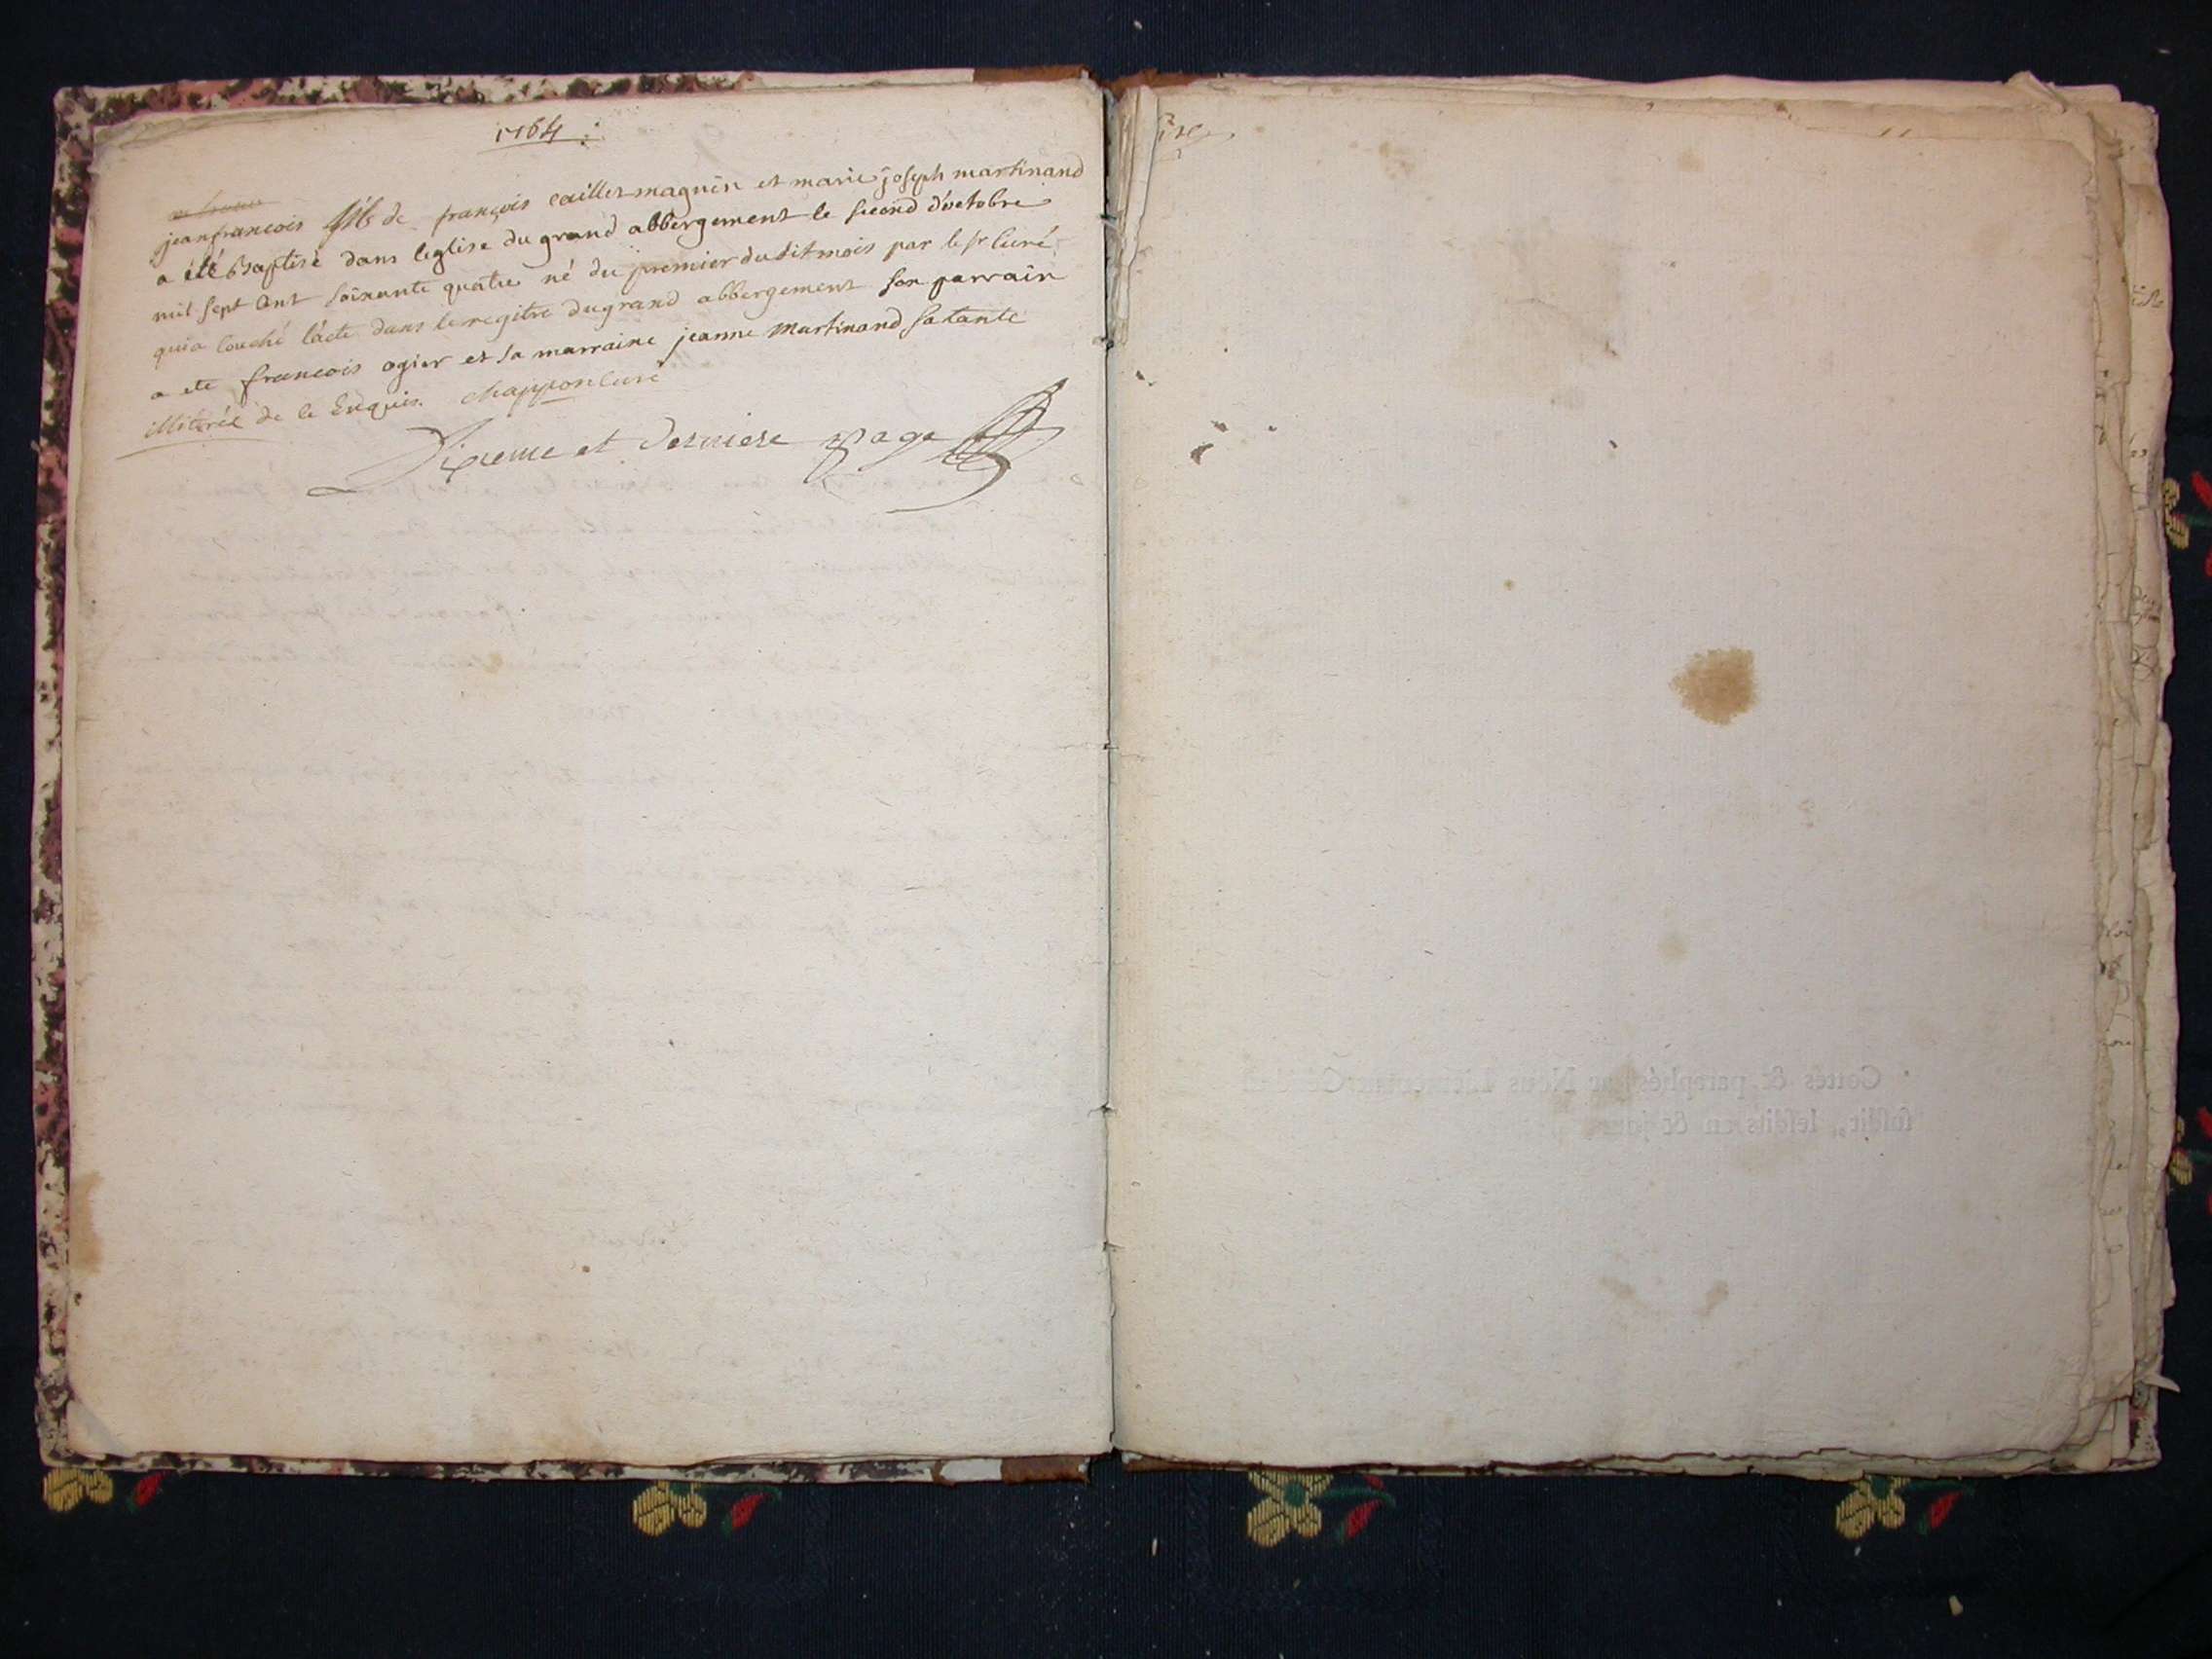 1764 :
jeanfrancois fils de françois caillet maguin et marie joseph martinand
a été baptisé dans leglise du grand abbergement le second d'octobre
mil sept cent soixante quatre né du premier dudit mois par le sr curé
qui a couché l'acte dans le regitre du grand abbergement son parrain
a ete francois ogier et sa marraine jeanne martinand sa tante
illiterée de ce enquis. chappon curé
Dixieme et derniere page
Cottés & paraphés par Nous Lieutenant Général
susdit, lesdits an & jour